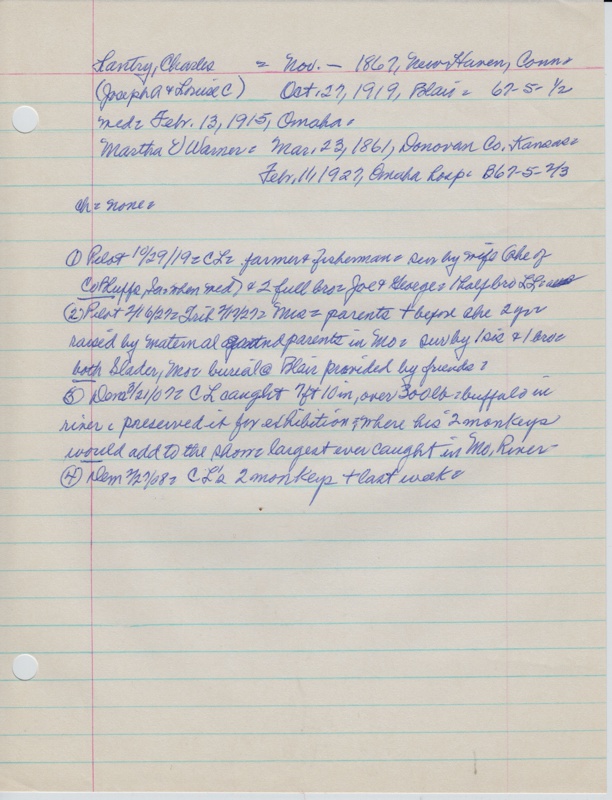 Lantry, Charles = Nov. — 1867, New Haven, Conn=
(Joseph A & Louise C) Oct. 27, 1919, Blair= 67-5-1/2
med= Febr. 13, 1915, Omaha=
Martha V Warner= Mar. 23, 1861, Donovan Co. Kansas=
Febr. 11, 1927, Omaha hosp= B67-5-2/3
ch= none=
① Pilot 10/29/19= CL= farmer & fisherman= sur by wife (she of
Co Bluffs, Ia when med) & 2 full bro= Joe & George= 1 half bro L L
② Pilot 2/16/27= Trib 2/17/27= Mrs= parents + before she 2 yr=
raised by maternal grandparents in Mo= sur by 1 sis & 1 bro=
both Slader, Mo= burial @ Blair provided by friends=
③ Dem 3/21/07= CL caught 7ft 10 in, over 300 lb= buffalo in
river = preserved it for exhibition = where his 2 monkeys
would add to the show= largest ever caught in Mo, River
④ Dem 2/27/08= CL's 2 monkeys + last week=